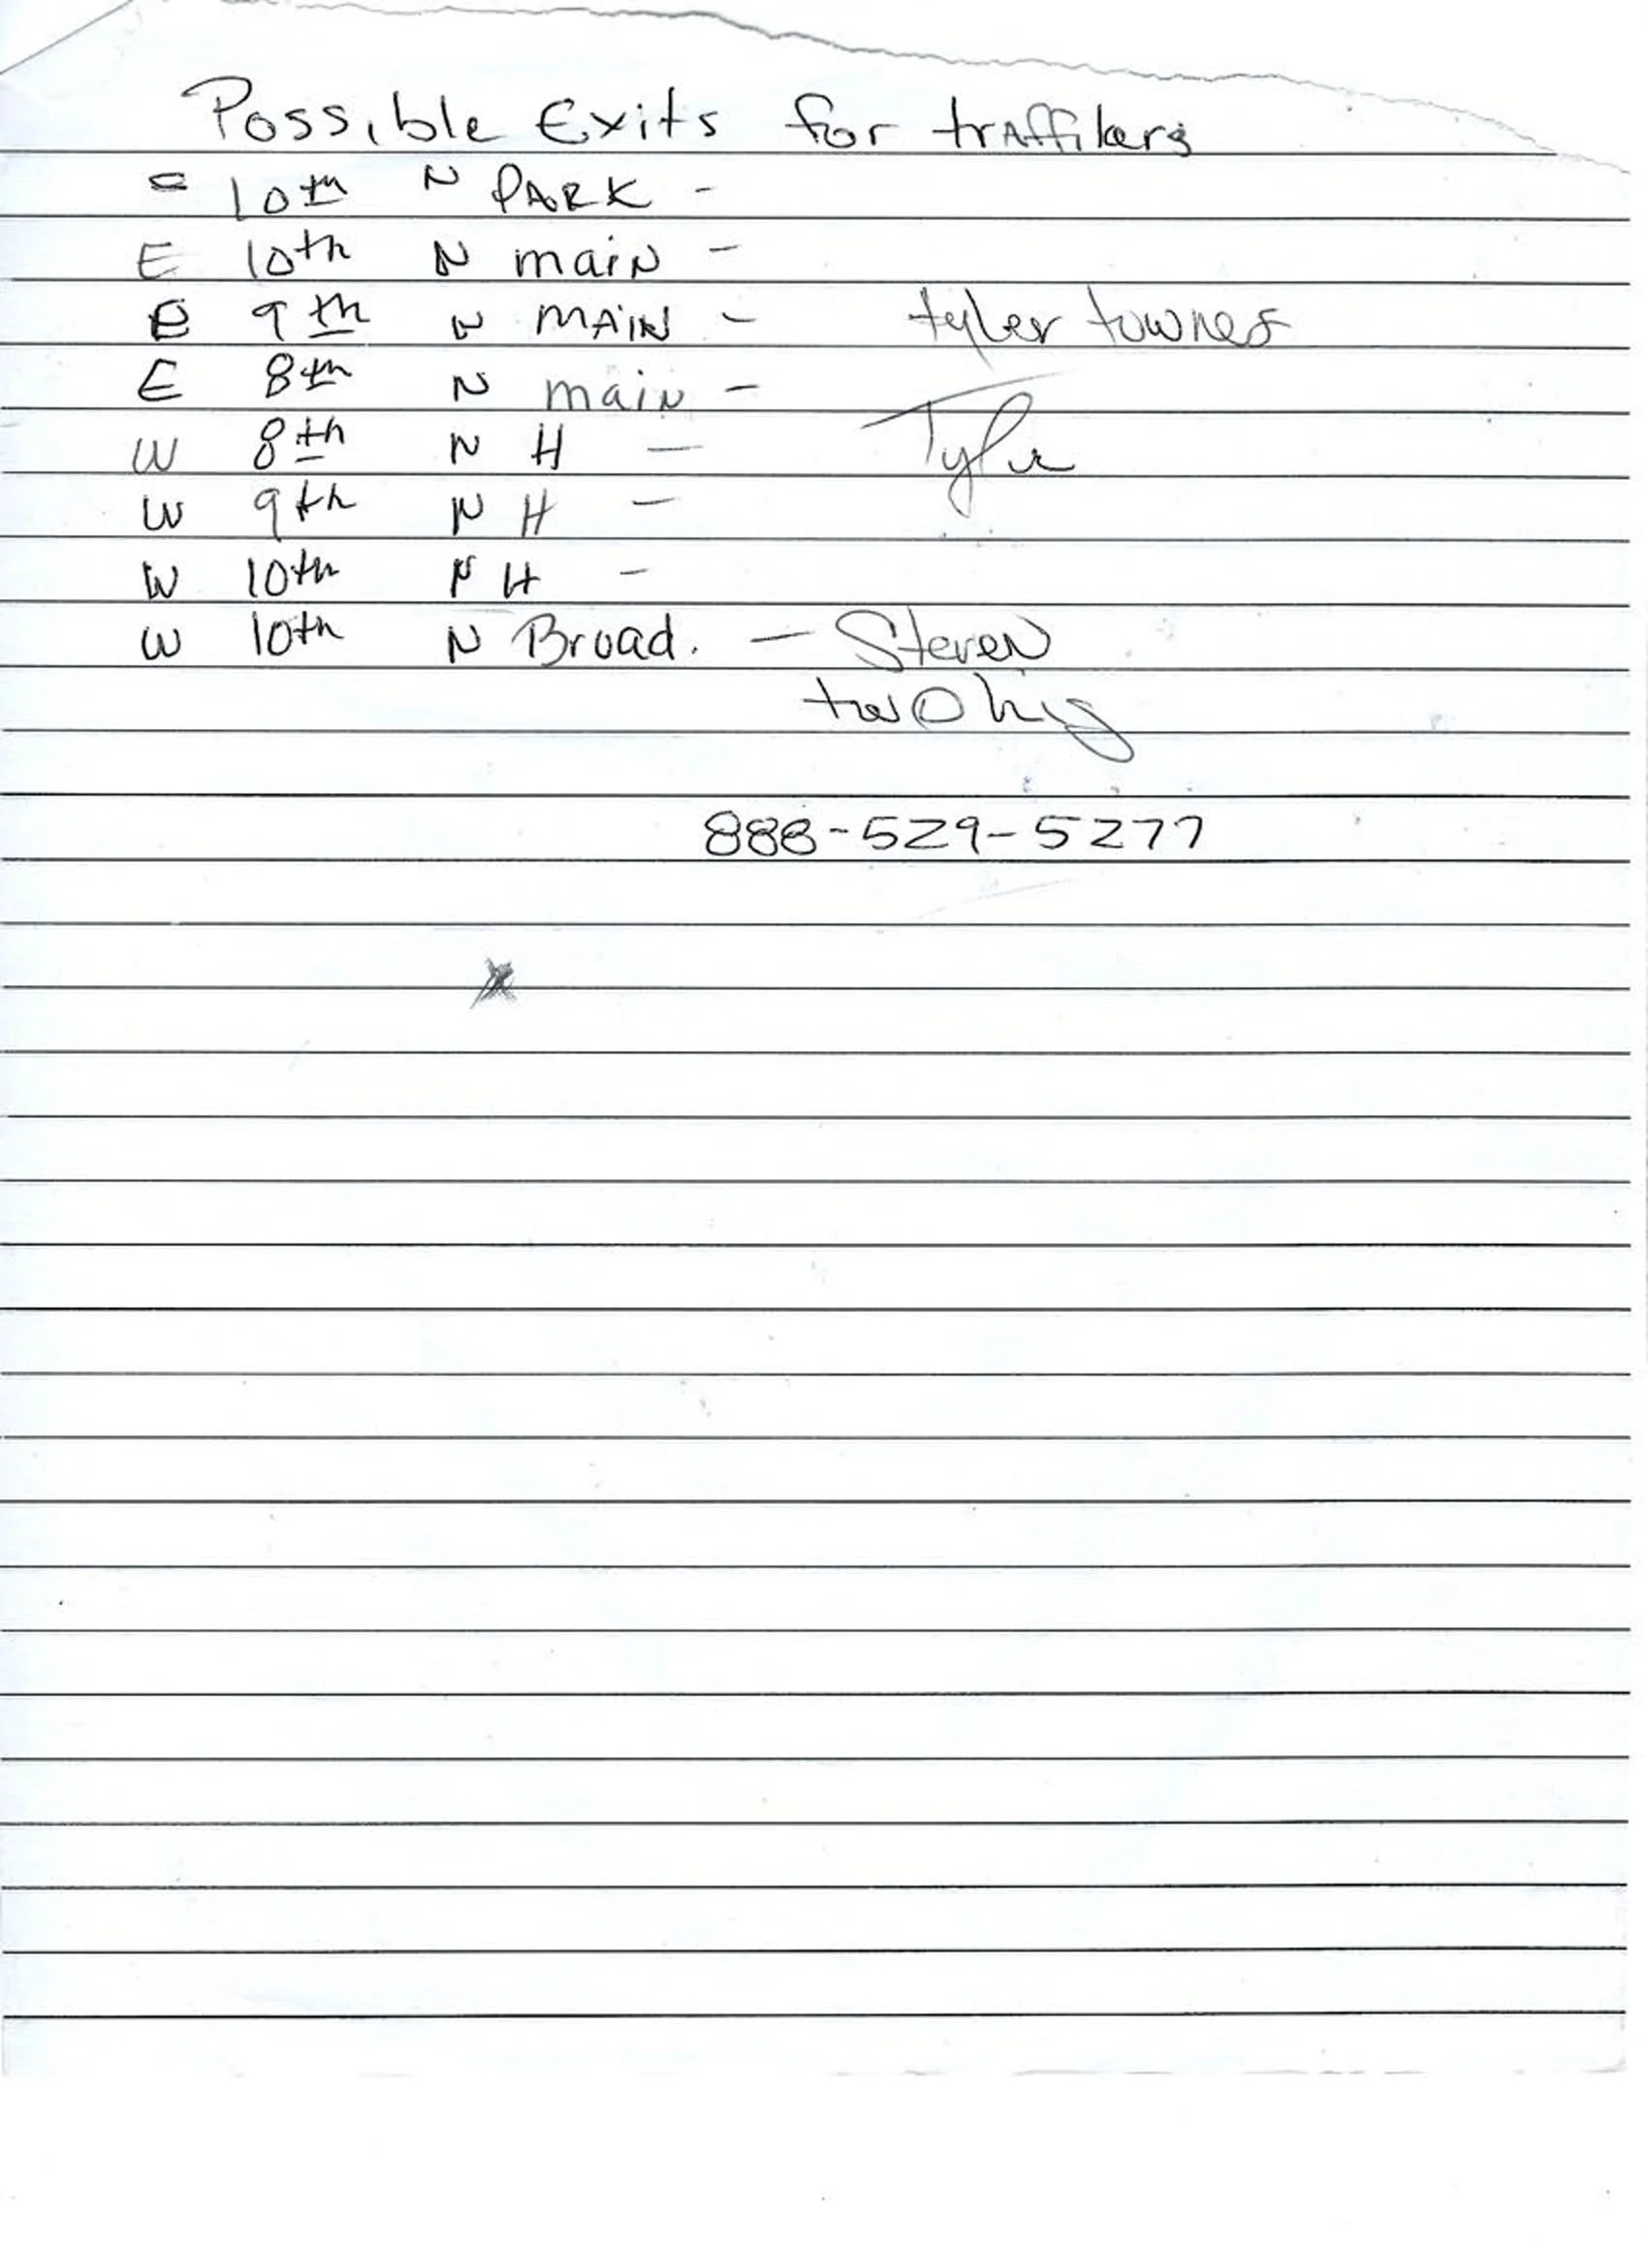 Possible Exits for traffikers
E 10th N PARK -
E 10th N main -
E 9th N MAIN - tyler townes
E 8th N main -
W 8th N H - Tyler
W 9th N H -
W 10th N H -
W 10th N Broad. - Steven
twohig
888-529-5277